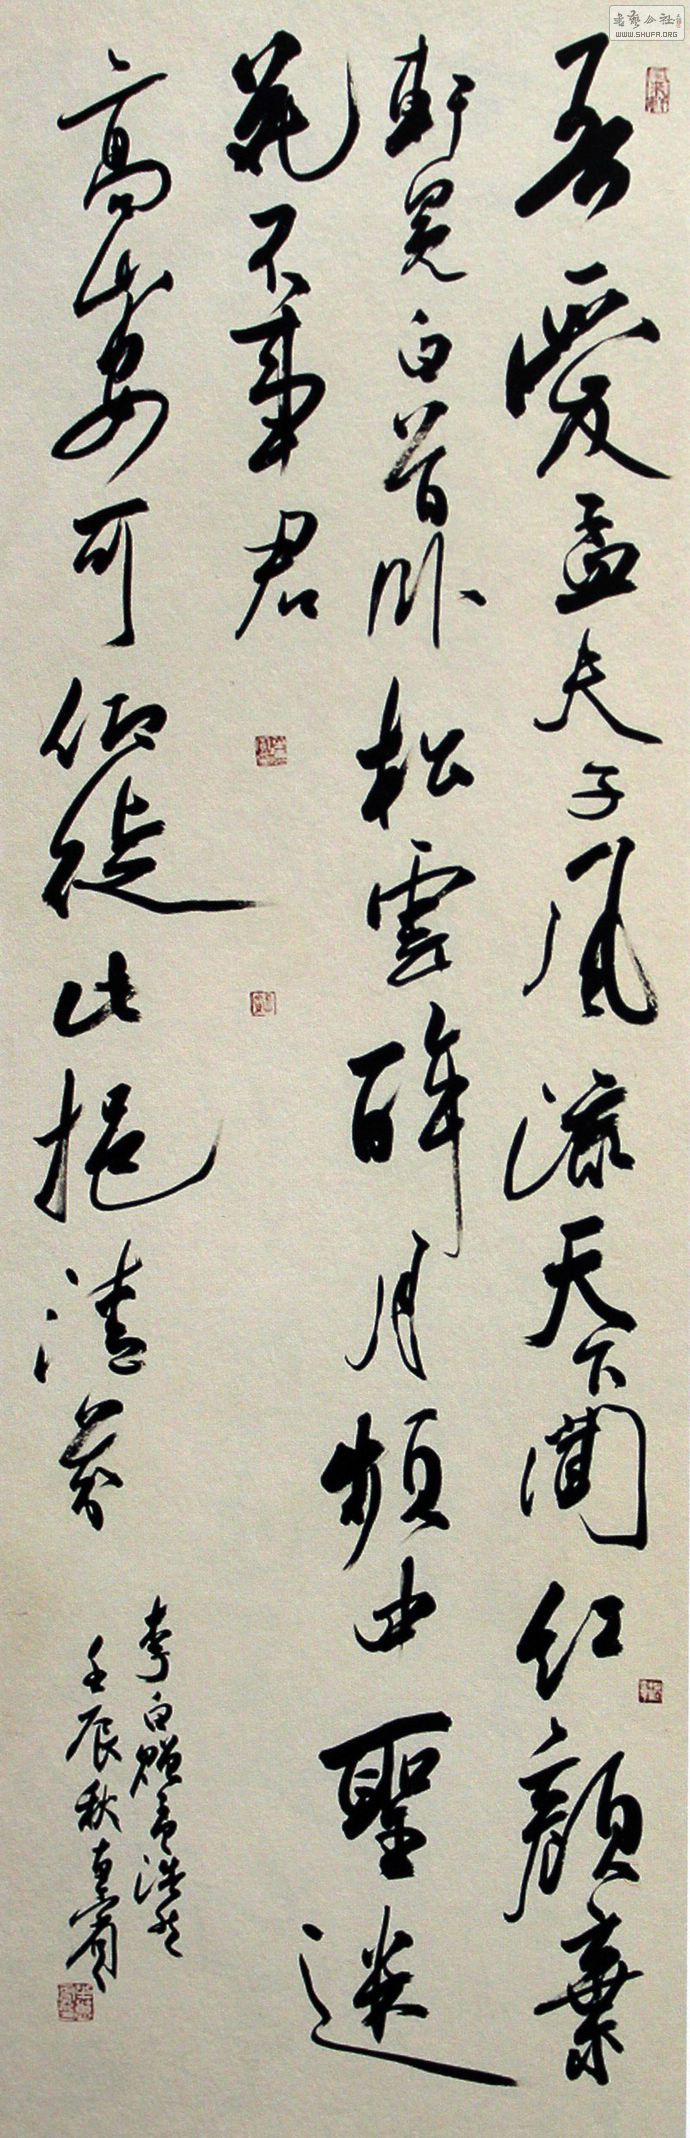 吾爱孟夫子风流天下闻红颜弃
轩冕白首卧松雲醉月频中聖迷
花不事君
高山安可仰徒此挹清芬
李白赠孟浩然
壬辰秋
书艺公社
WWW.SHUFA.ORG